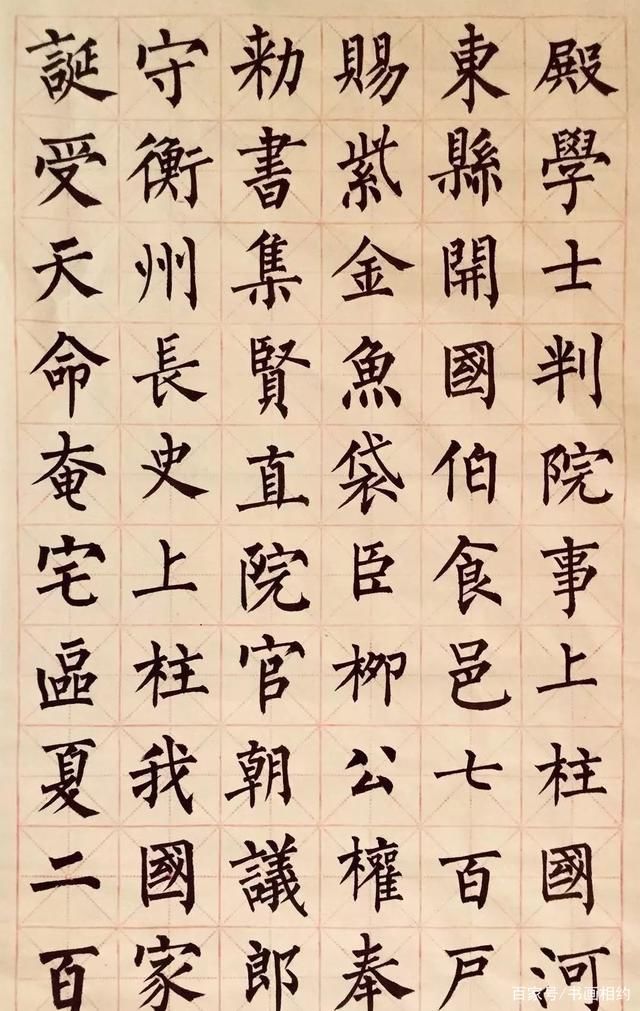 殿學士判院事上柱國河
東縣開國伯食邑七百戸
賜紫金魚袋臣柳公權奉
勑書集賢直院官朝議郎
守衡州長史上柱我國家
誕受天命奄宅區夏二百
百家号/书画相约